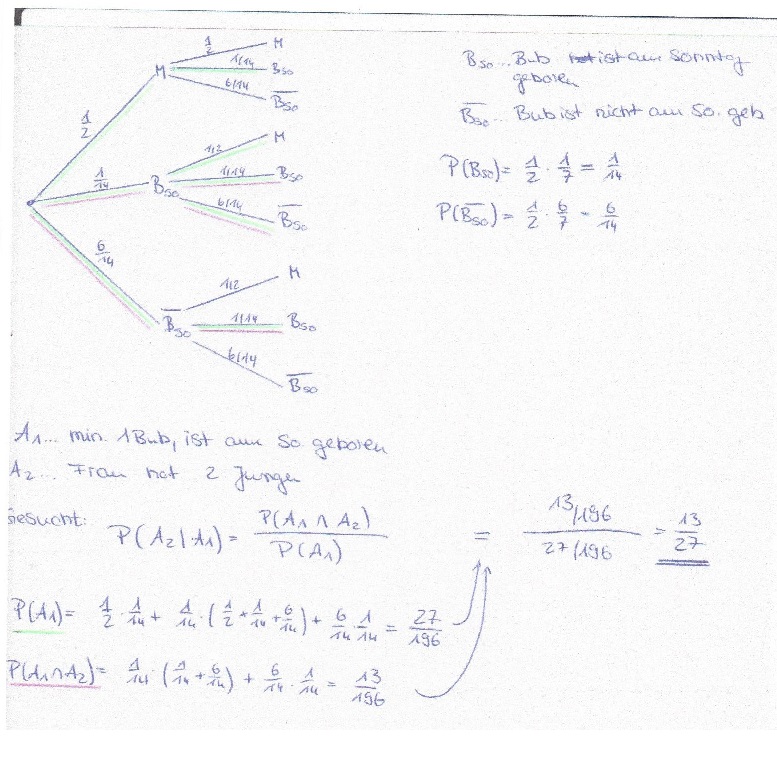 1/2 M
M 1/14 B_so
6/14 B̅_so
1/2
1/2 M
1/14 B_so 1/14 B_so
6/14 B̅_so
6/14
1/2 M
B̅_so 1/14 B_so
6/14 B̅_so
B_so ... Bub ist am Sonntag
geboren
B̅_so ... Bub ist nicht am So. geb
P(B_so) = 1/2 · 1/7 = 1/14
P(B̅_so) = 1/2 · 6/7 = 6/14
A₁ ... min. 1 Bub, ist am So. geboren
A₂ ... Frau hat 2 Jungen
Gesucht:
P(A₂|A₁) = P(A₁ ∩ A₂) / P(A₁) = (13/196) / (27/196) = 13/27
P(A₁) = 1/2 · 1/14 + 1/14 · (1/2 + 1/14 + 6/14) + 6/14 · 1/14 = 27/196
P(A₁∩A₂) = 1/14 · (1/14 + 6/14) + 6/14 · 1/14 = 13/196